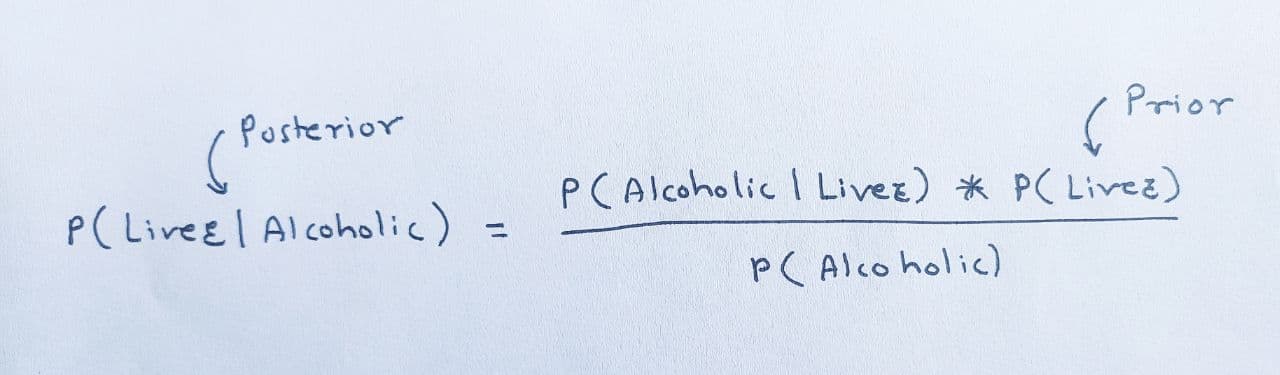 Posterior
Prior
P(Liver | Alcoholic) = P(Alcoholic | Liver) * P(Liver)
P(Alcoholic)